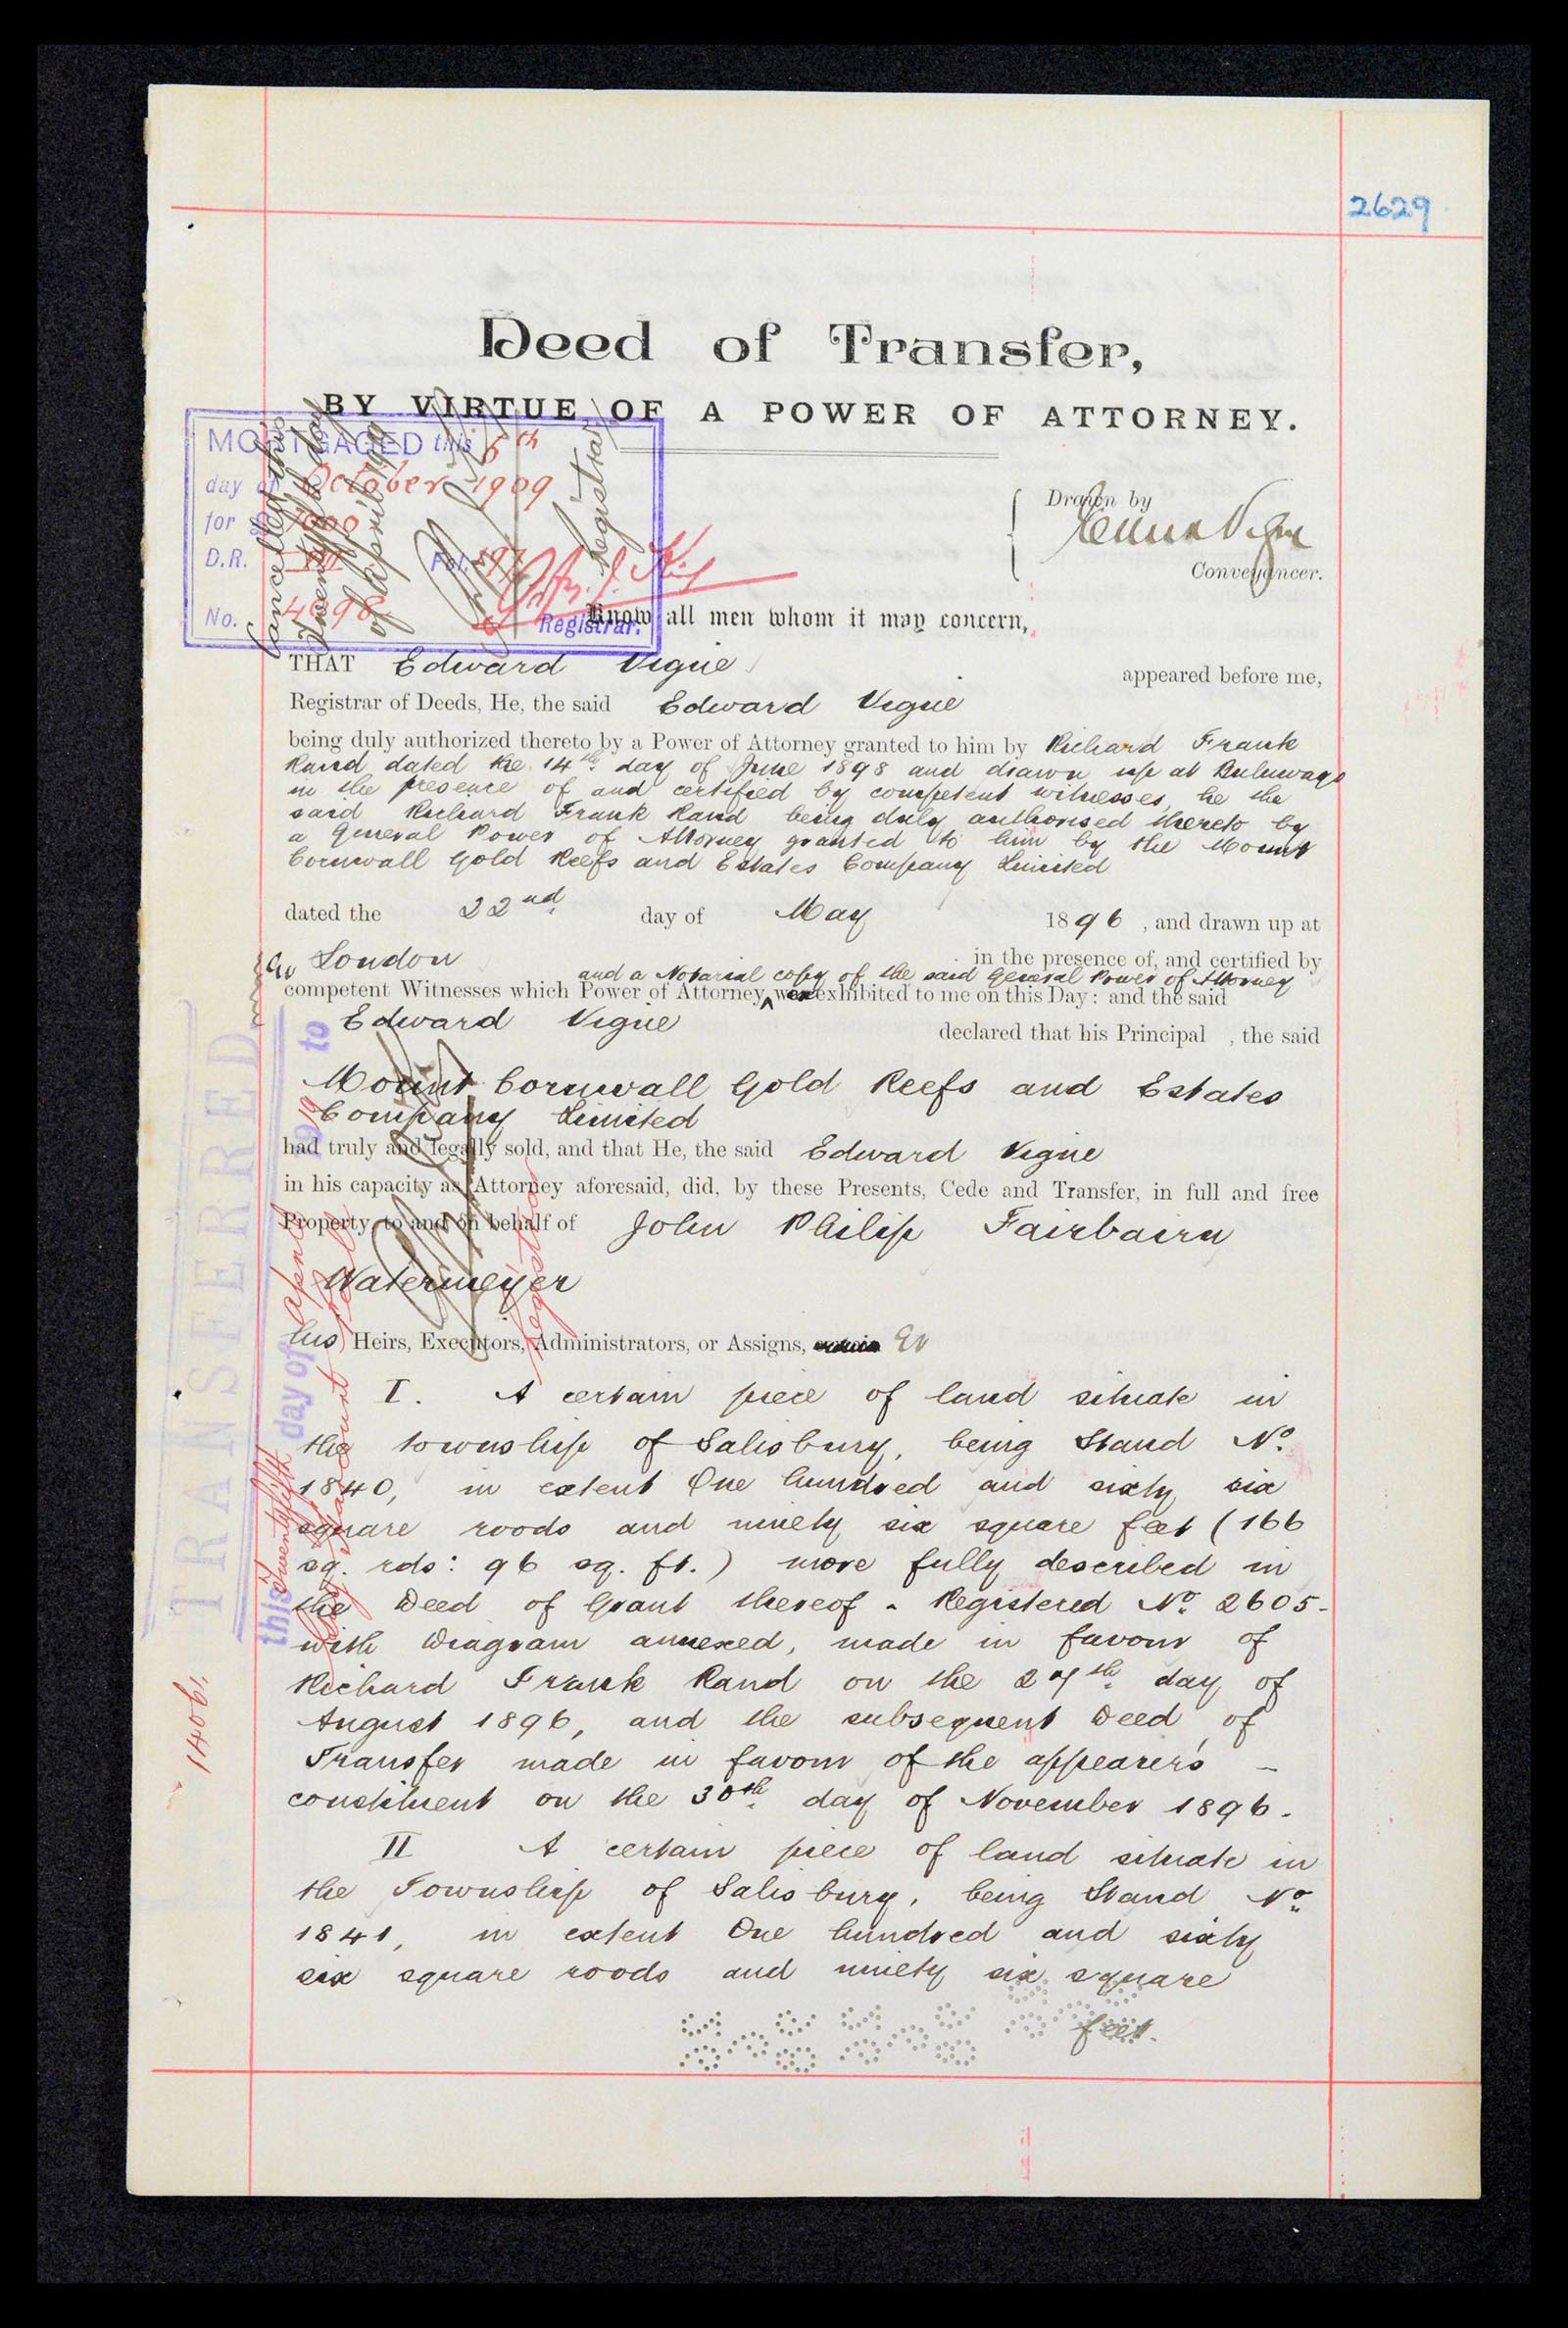 2629
Deed of Transfer,
BY VIRTUE OF A POWER OF ATTORNEY.
MORTGAGED this 6th
day of October 1909
for £
D.R. Fol.
No. 4098
Registrar.
Cancelled this
Twenty fifth day
of April 19
Registrar
Drawn by
Conveyancer.
Know all men whom it may concern,
THAT Edward Vigne appeared before me,
Registrar of Deeds, He, the said Edward Vigne
being duly authorized thereto by a Power of Attorney granted to him by Richard Frank
Rand dated the 14th day of June 1898 and drawn up at Buluwayo
in the presence of and certified by competent witnesses, he the
said Richard Frank Rand being duly authorised thereto by
a General Power of Attorney granted to him by the Mount
Cornwall Gold Reefs and Estates Company Limited
dated the 22nd day of May 1896, and drawn up at
London in the presence of, and certified by
and a Notarial copy of the said General Power of Attorney
competent Witnesses which Power of Attorney were exhibited to me on this Day: and the said
Edward Vigne declared that his Principal , the said
Mount Cornwall Gold Reefs and Estates
Company Limited
had truly and legally sold, and that He, the said Edward Vigne
in his capacity as Attorney aforesaid, did, by these Presents, Cede and Transfer, in full and free
Property, to and on behalf of John Philip Fairbairn
Watermeyer
his Heirs, Executors, Administrators, or Assigns,
I. A certain piece of land situate in
the township of Salisbury, being Stand No.
1840, in extent One hundred and sixty six
square roods and ninety six square feet (166
sq. rds: 96 sq. ft.) more fully described in
the Deed of Grant thereof - Registered No. 2605-
with Diagram annexed, made in favour of
Richard Frank Rand on the 27th day of
August 1896, and the subsequent Deed of
Transfer made in favour of the appearer's -
constituent on the 30th day of November 1896.
II A certain piece of land situate in
the Township of Salisbury, being Stand No
1841, in extent One hundred and sixty
six square roods and ninety six square
feet.
TRANSFERRED to
this Twenty fifth day of April 19
Registrar
14061